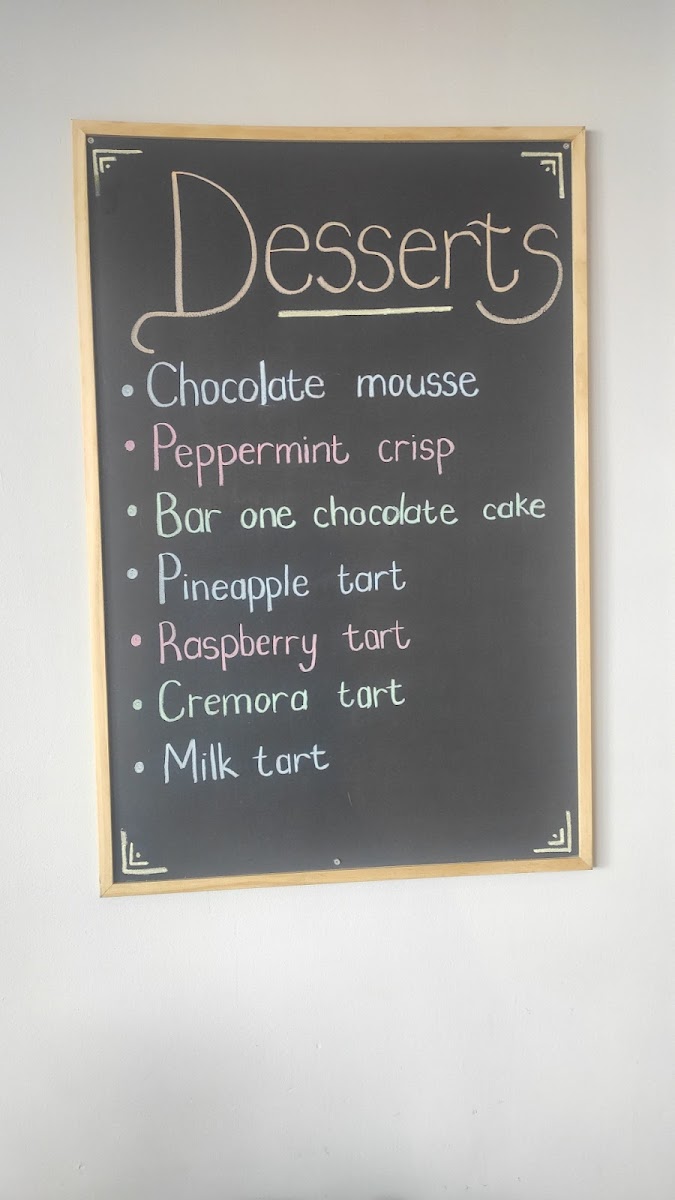 Desserts
• Chocolate mousse
• Peppermint crisp
• Bar one chocolate cake
• Pineapple tart
• Raspberry tart
• Cremora tart
• Milk tart